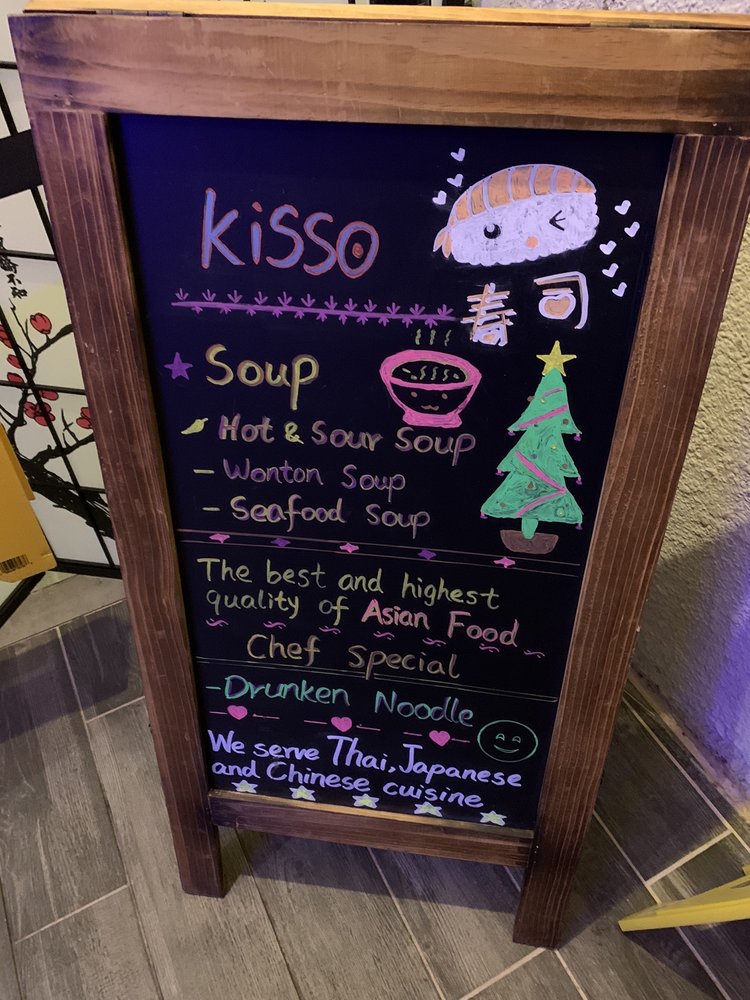 Kisso
寿司
Soup
Hot & Sour Soup
- Wonton Soup
- Seafood Soup
The best and highest
quality of Asian Food
Chef Special
- Drunken Noodle
We serve Thai, Japanese
and Chinese cuisine